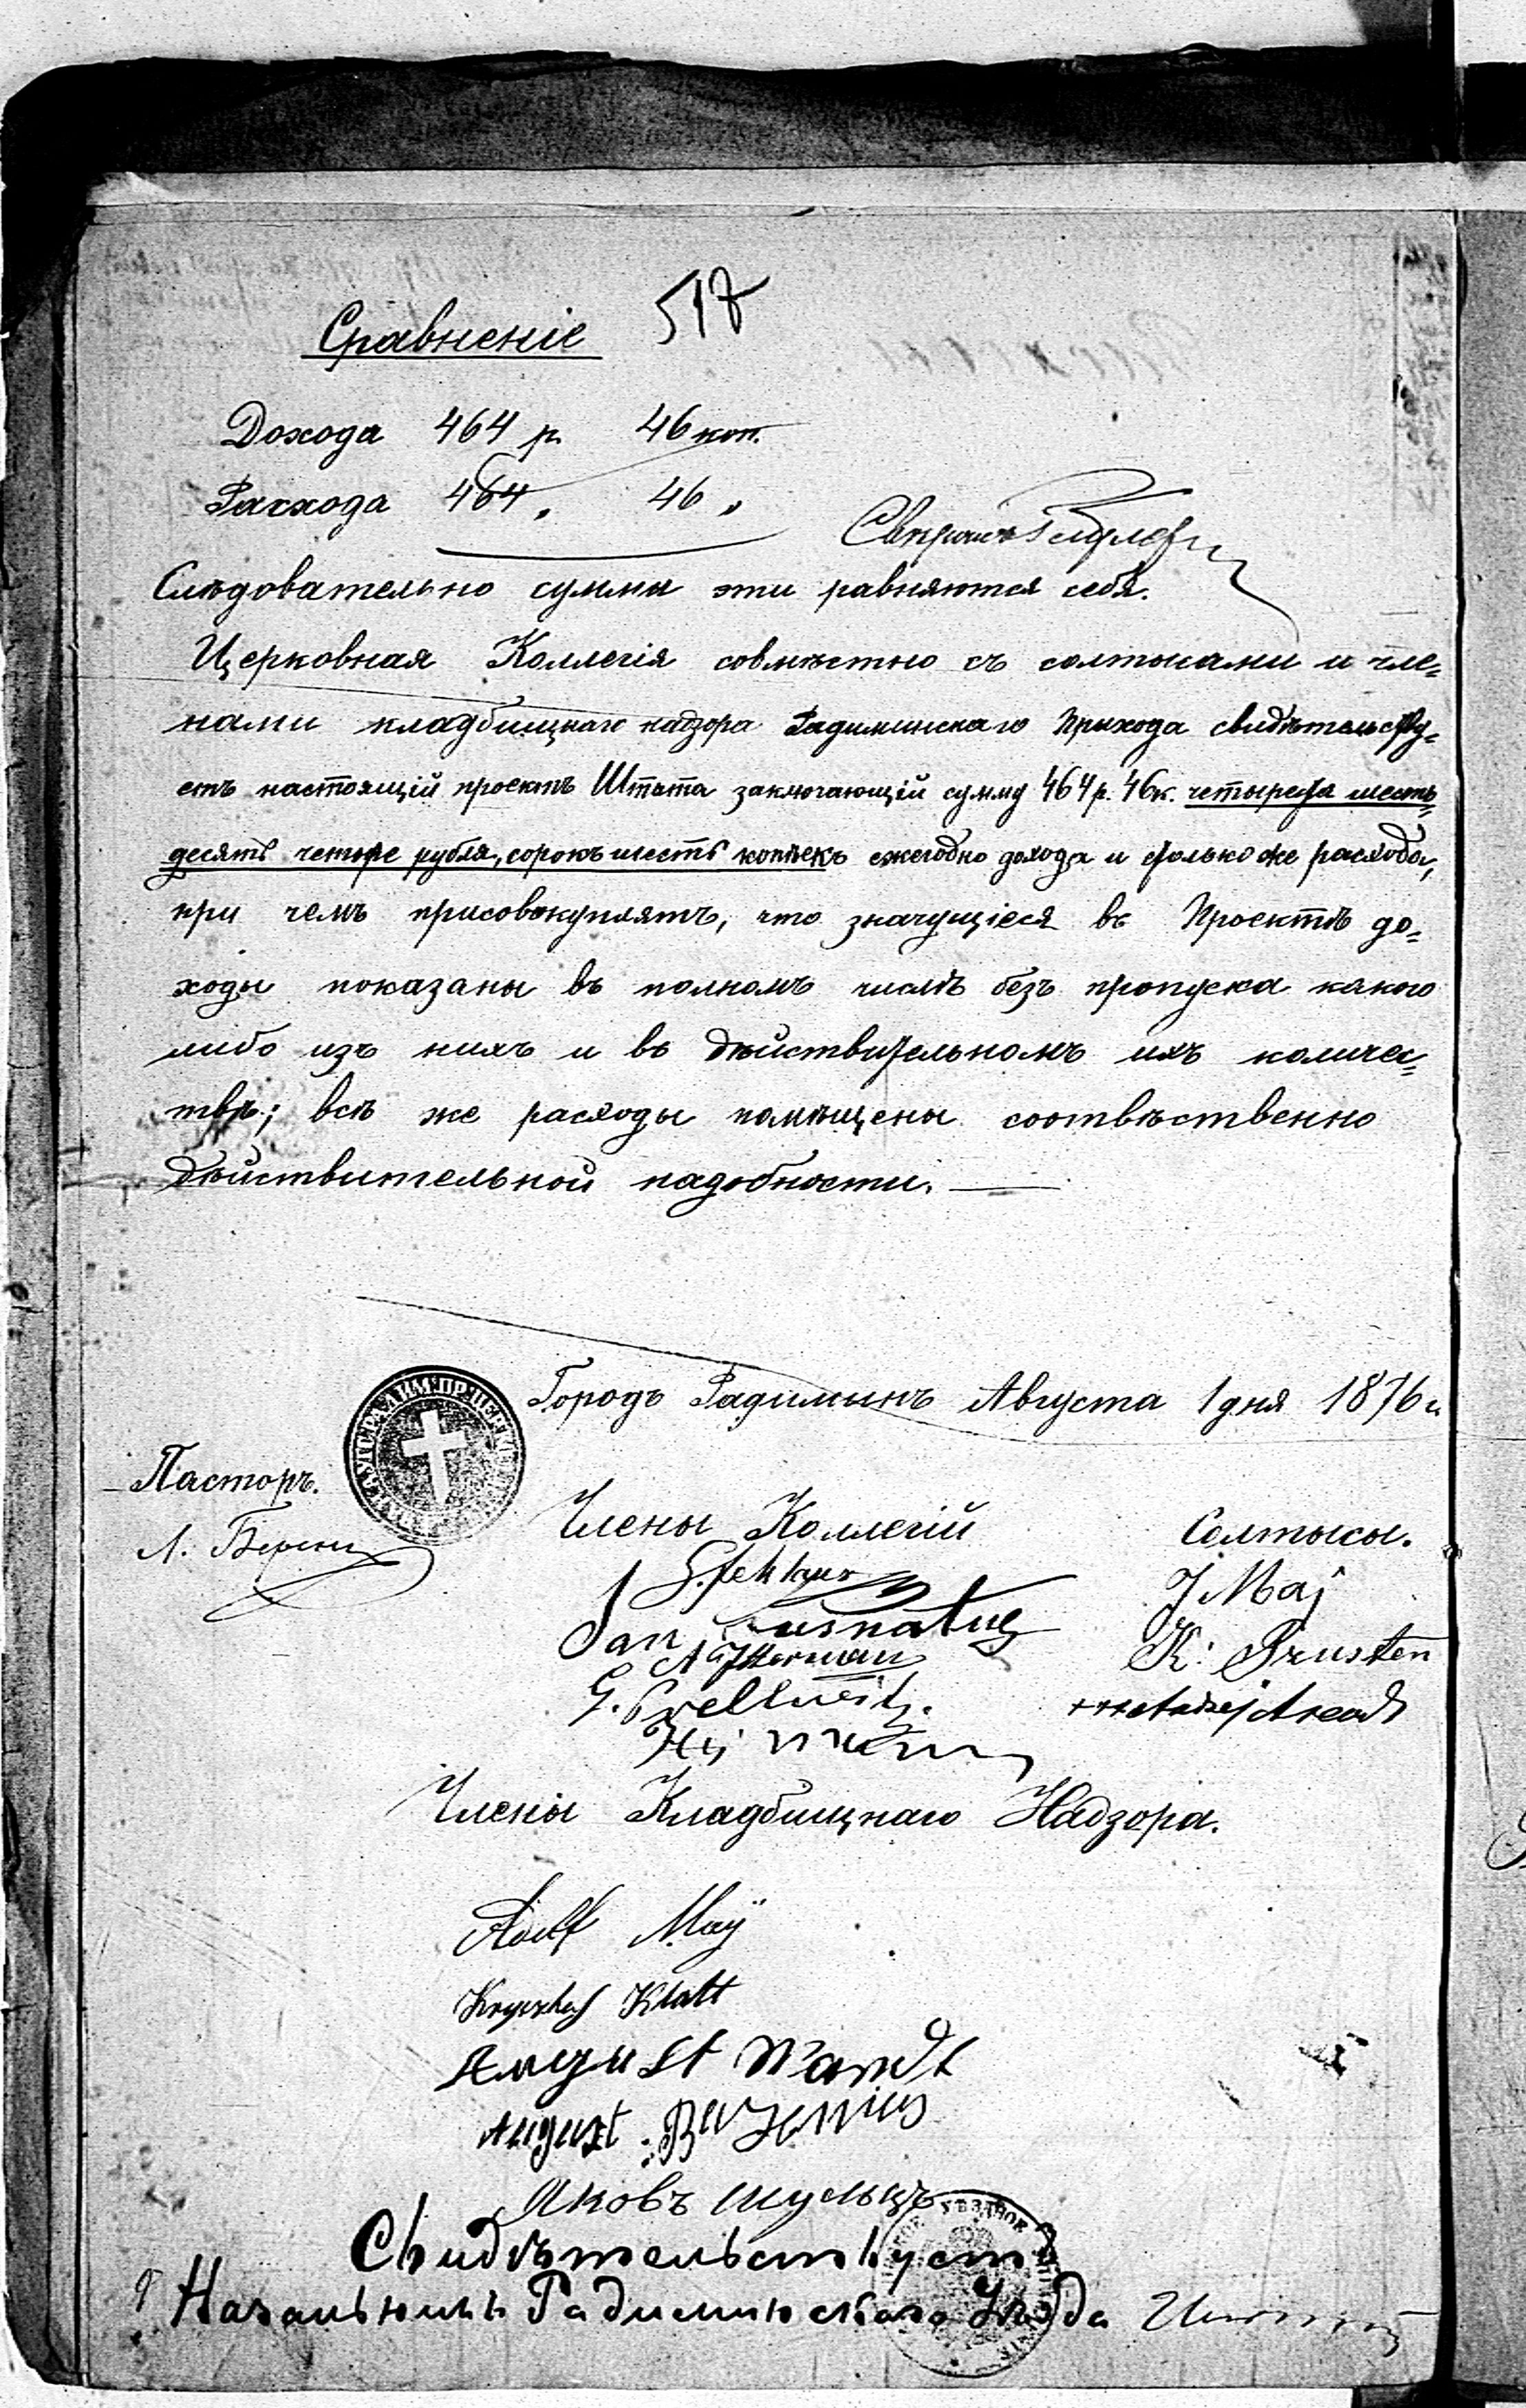 518
Сравненіе
Дохода 464 р. 46 коп.
Расхода 464 „ 46 „
Слѣдовательно суммы эти равняются себѣ.
Церковная Коллегія совмѣстно съ солтысами и чле=
нами кладбищнаго надзора Радиминскаго Прихода свидѣтельству=
етъ настоящій проектъ Штата заключающій сумму 464 р. 46 к. четыреста шесть=
десятъ четыре рубля, сорокъ шесть копѣекъ ежегодно дохода и столько же расхода,
при чемъ присовокупляетъ, что значущіеся въ Проектѣ до=
ходы показаны въ полномъ числѣ безъ пропуска какого
либо изъ нихъ и въ дѣйствительномъ ихъ количес=
твѣ; всѣ же расходы помѣщены соотвѣственно
дѣйствительной надобности.
Городъ Радиминъ Августа 1 дня 1876 г.
Пасторъ.
Члены Коллегій
Солтысы.
Л.
J Maj
Jan
K. Prusten
G.
+++ Andrzej Arendt
Члены Кладбищнаго Надзора.
Adolf May
Krysztof Klatt
August Wandt
August
Яковъ Шульцъ
Свидѣтельствуетъ
Начальникъ Радиминскаго Уѣзда